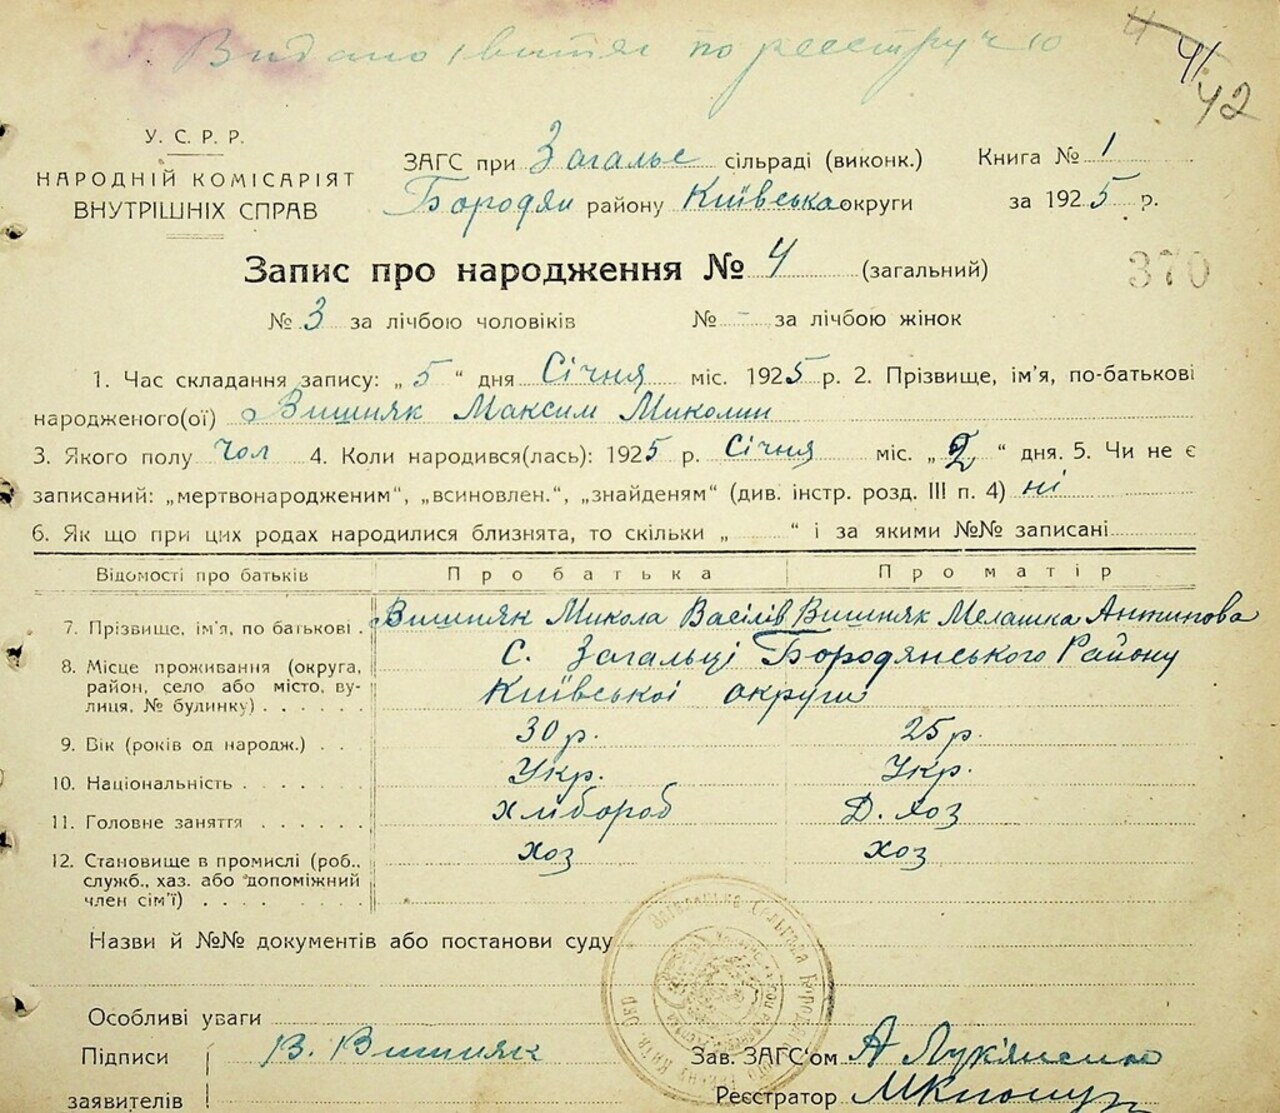 Видано витяг по реестру ч 10
41
42
У. С. Р. Р.
НАРОДНІЙ КОМІСАРІЯТ
ВНУТРІШНІХ СПРАВ
ЗАГС при Загальс сільраді (виконк.)
Бородян району Київська округи
Книга № 1
за 1925 р.
Запис про народження № 4 (загальний)
370
№ 3 за лічбою чоловіків № - за лічбою жінок
1. Час складання запису: „ 5 “ дня Січня міс. 1925 р. 2. Прізвище, ім’я, по-батькові
народженого(ої) Вишняк Максим Миколин
3. Якого полу Чол 4. Коли народився(лась): 1925 р. Січня міс. „ 2 “ дня. 5. Чи не є
записаний: „мертвонародженим“, „всиновлен.“, „знайденям“ (див. інстр. розд. III п. 4) ні
6. Як що при цих родах народилися близнята, то скільки „ “ і за якими №№ записані
Відомості про батьків Про батька Про матір
7. Прізвище, ім’я, по батькові . Вишняк Микола Васілів Вишняк Мелашка Антипова
8. Місце проживання (округа, район, село або місто, вулиця, № будинку) . . . . . . С. Загальці Бородянського Району
Київської округи
9. Вік (років од народж.) . . . 30 р. 25 р.
10. Національність . . . . . . . Укр. Укр.
11. Головне заняття . . . . . . хлібороб Д. хоз
12. Становище в промислі (роб., служб., хаз. або допоміжний член сім’ї) . . . . . . . хоз хоз
Назви й №№ документів або постанови суду
Особливі уваги
Підписи заявителів В. Вишняк
Зав. ЗАГС’ом А Лук'яненко
Реєстратор